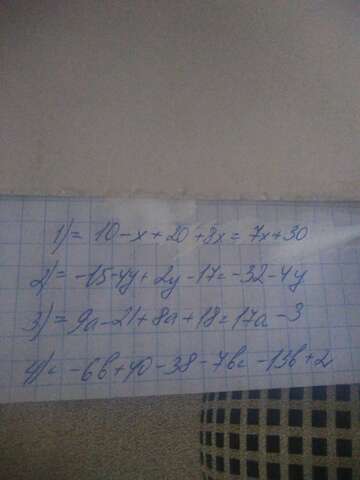 1) = 10 - x + 20 + 8x = 7x + 30
2) = -15 - 4y + 2y - 17 = -32 - 4y
3) = 9a - 21 + 8a + 18 = 17a - 3
4) = -6b + 40 - 38 - 7b = -13b + 2